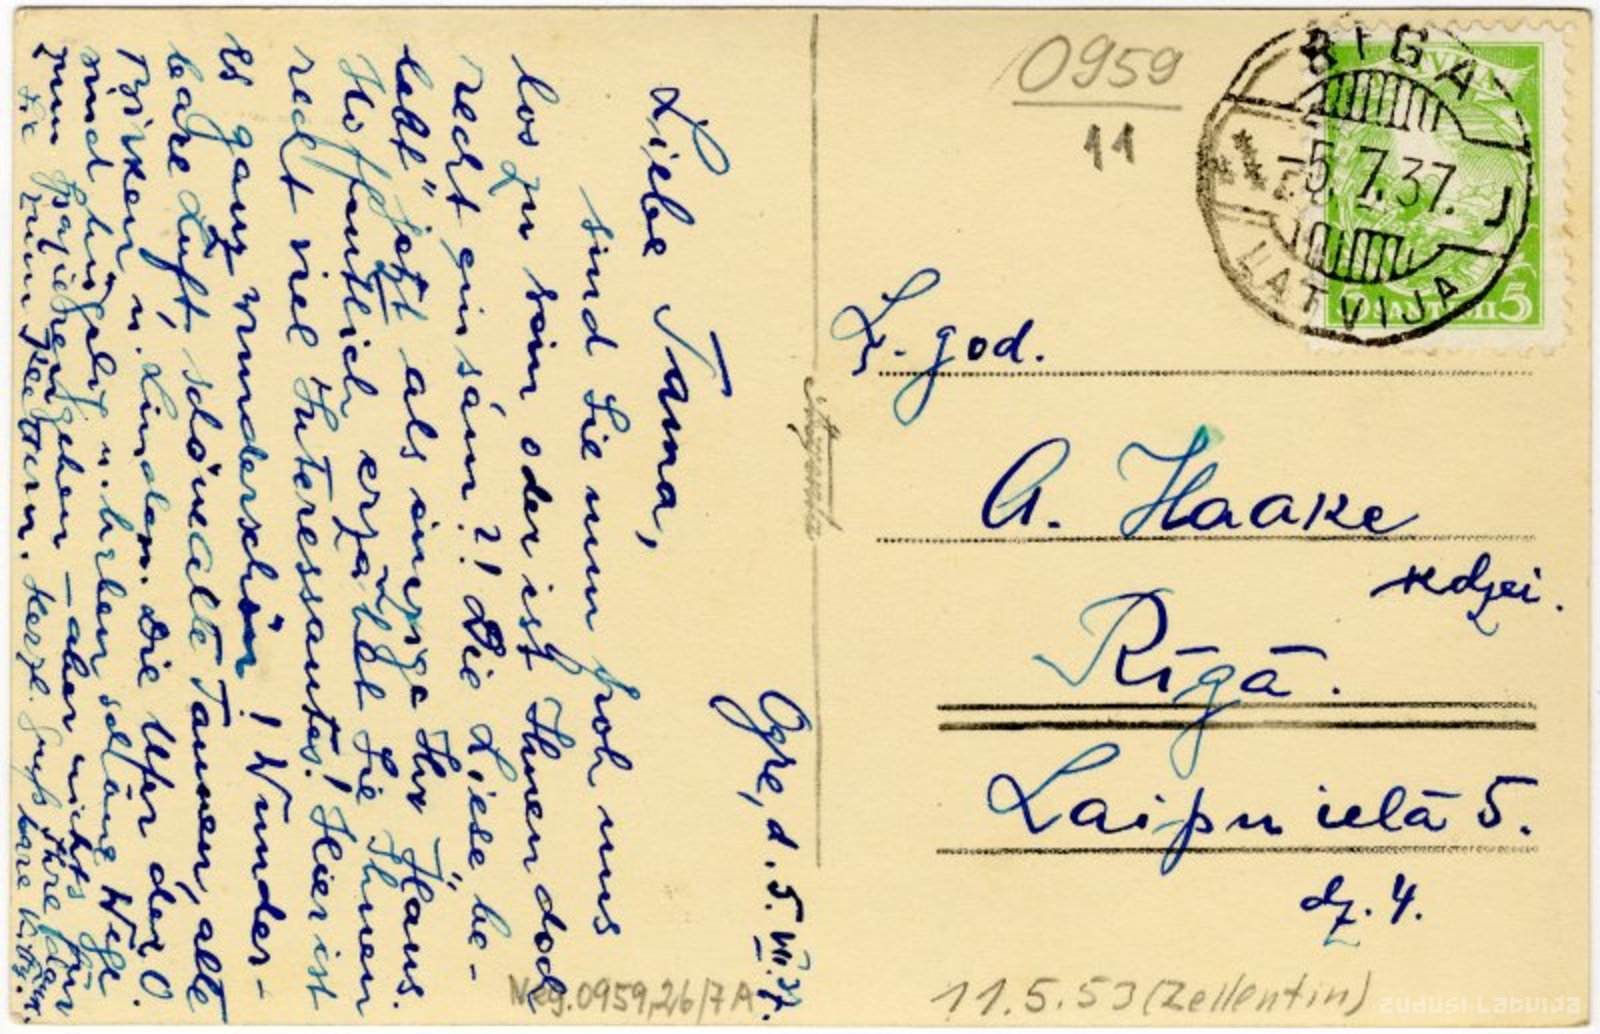 Ogre, d. 5. VII. 37.
Liebe Tanna,
sind Sie nun froh uns
los zu sein oder ist Ihnen doch
recht einsam?! Die Liese be-
lebt jetzt als einzige Ihr Haus.
Hoffentlich erzählt Sie Ihnen
recht viel Interessantes! Hier ist
es ganz wunderschön! Wunder-
bare Luft, schöne alte Tannen, alte
Birken u. Linden. Die Ufer der O.
sind hügelig u. haben schöne Wege
zum Spazierengehen – aber nichts für
Sie zum Klettern. Herzl. Gruß
0959
11
RIGA
5.7.37. J
LATVIJA
LATVIJA
5 SANTIMI 5
L. god.
A. Haake
kdzei.
Rīgā.
Laipu ielā 5.
dz. 4.
Neg. 0959,26/7A
11.5.53 (Zellentin)
ZUDUSI LATVIJA